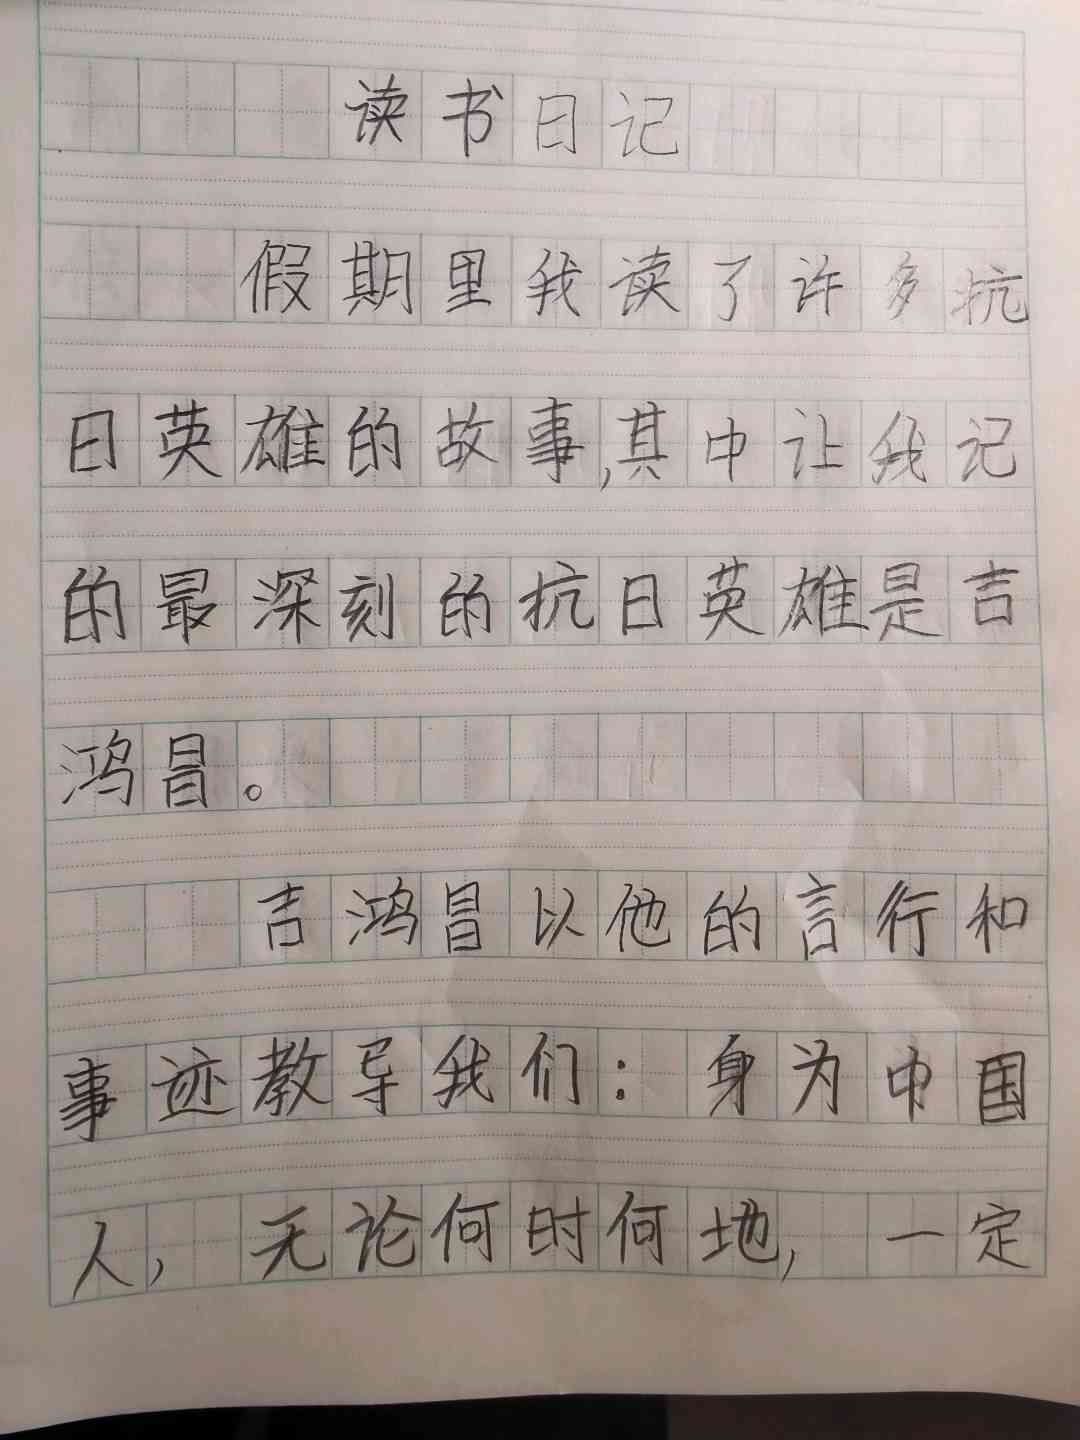 读书日记
假期里我读了许多抗
日英雄的故事,其中让我记
的最深刻的抗日英雄是吉
鸿昌。
吉鸿昌以他的言行和
事迹教导我们：身为中国
人，无论何时何地，一定